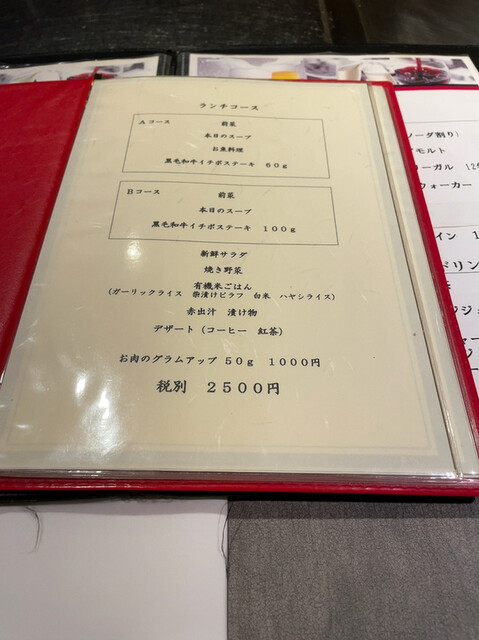 ランチコース
Aコース 前菜
本日のスープ
お魚料理
黒毛和牛イチボステーキ 60g
Bコース 前菜
本日のスープ
黒毛和牛イチボステーキ 100g
新鮮サラダ
焼き野菜
有機米ごはん
(ガーリックライス 柴漬けピラフ 白米 ハヤシライス)
赤出汁 漬け物
デザート(コーヒー 紅茶)
お肉のグラムアップ 50g 1000円
税別 2500円
ソーダ割り)
モルト
ーガル 12
ウォーカー
イン 1
ドリン